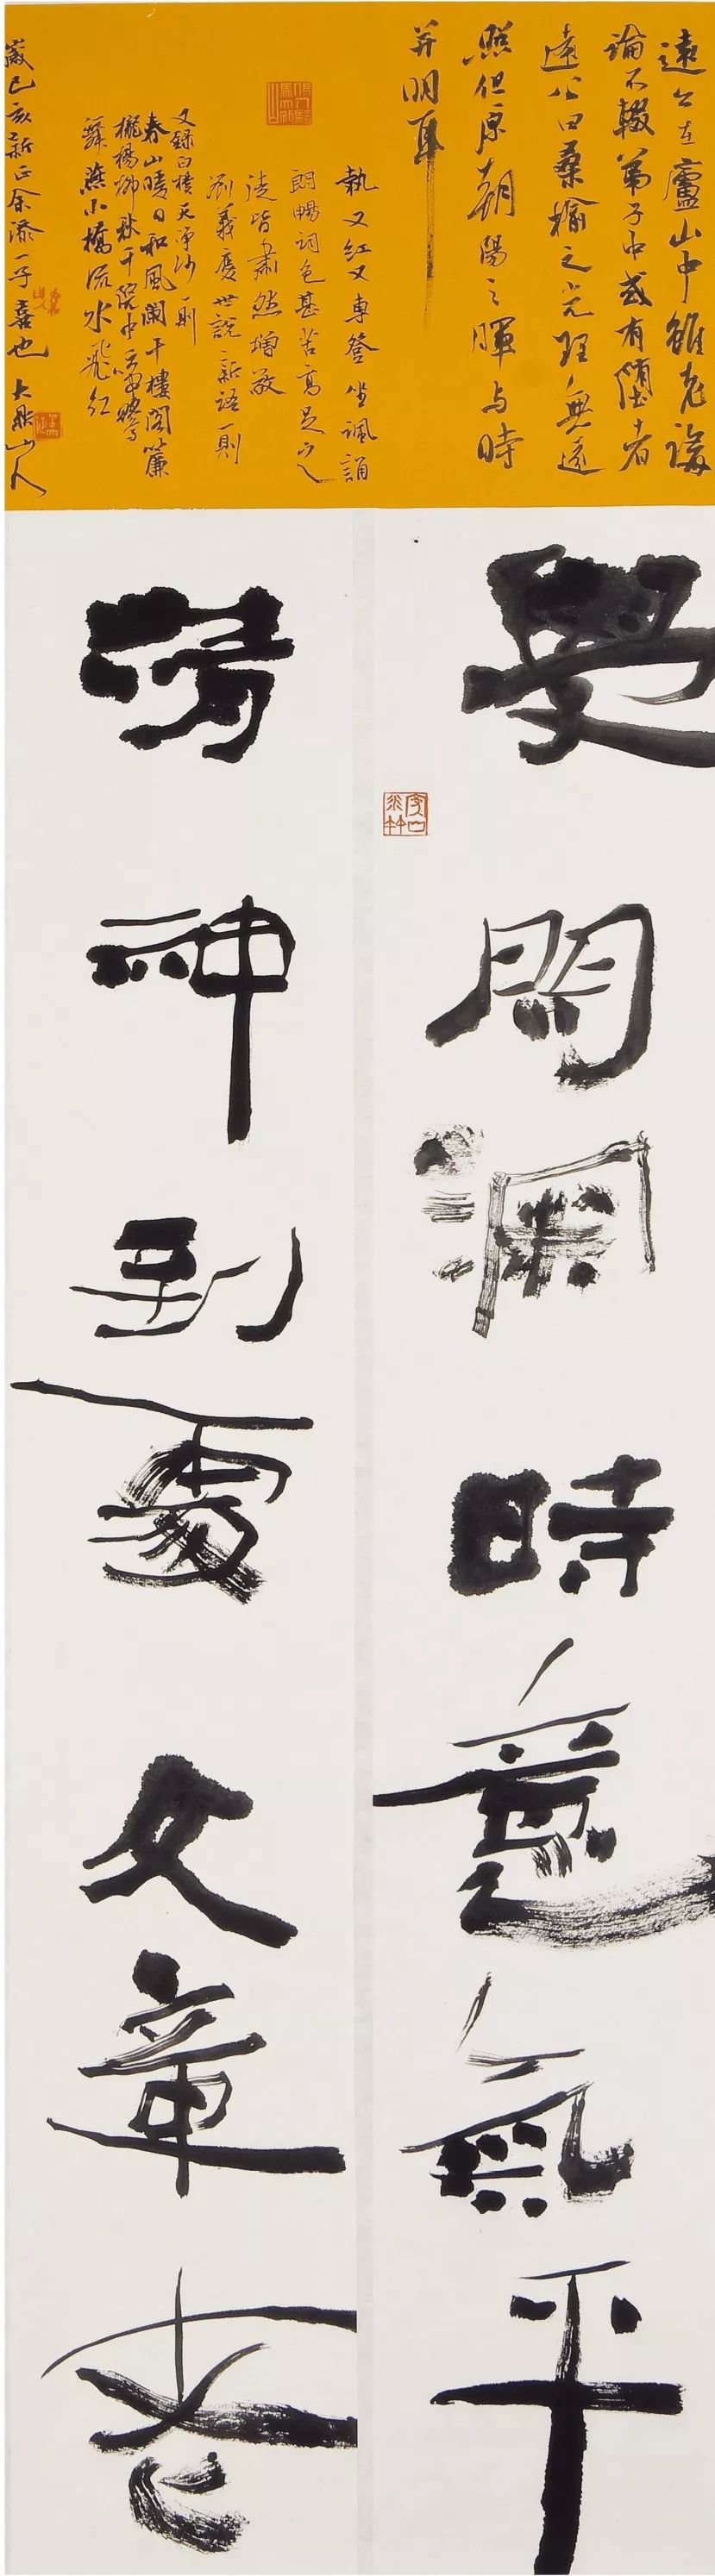 遠公在廬山中雖老講
論不輟弟子中或有墮者
遠公曰桑榆之光理無遠
照但原朝陽之暉与時
并明耳
執又紅又專登坐諷誦
朗暢詞色甚苦高足之
徒皆肅然增敬
劉義慶世說新語一則
又録白樸天淨沙一則
春山暖日和風闌干樓閣簾
櫳楊柳秋千院中啼鶯
舞燕小橋流水飛紅
歲己亥新正余添一子喜也 大鼎山人
學問深時意氣平
精神到處文章老